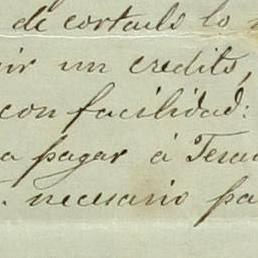 de cortarlo lo
un credito,
con facilidad:
a pagar á
necesario pa